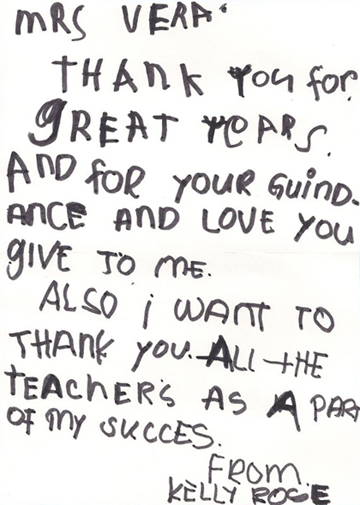 MRS VERA'
THANK You for
gREAT YEARS.
AND foR YOUR GUIND-
ANCE AND LOVE YOU
gIVE TO ME.
ALSO i WANT TO
THANK YOU. ALL THE
TEACHERS AS A PART
OF MY SUCCES.
FROM.
KELLY ROSE